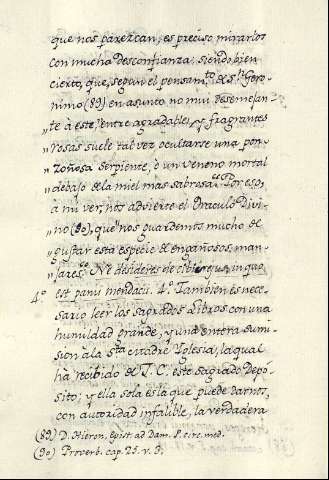 que nos parezcan, es preciso mirarlos
con mucha desconfianza, siendo bien
cierto, que, segun el pensam.to de S.n Gero-
nimo (89) en asunto no mui desemejan-
„te à este, entre agradables, y fragrantes
„rosas suele tal vez ocultarse una pon-
„zoñosa serpiente, ò un veneno mortal
debajo de la miel mas sabrosa. Por eso,
à mi ver, nos advierte el Oraculo Divi-
no (90), que „nos guardemos mucho de
„gustar esta especie de engañosos man-
„jares. Ne desideres de cibis ejus, in quo
4.o est panis mendacii. 4.o Tambien es nece-
sario leer los sagrados Libros con una
humildad grande, y una entera sumi-
sion à la S.ta Madre Yglesia, la qual
hà recibido de J. C. este sagrado Depo-
sito; y ella sola es la que puede darnos,
con autoridad infalible, la verdadera
(89) D. Hieron. Epist. ad Dam. P. circ. med.
(90) Proverb. cap. 23. v. 3.